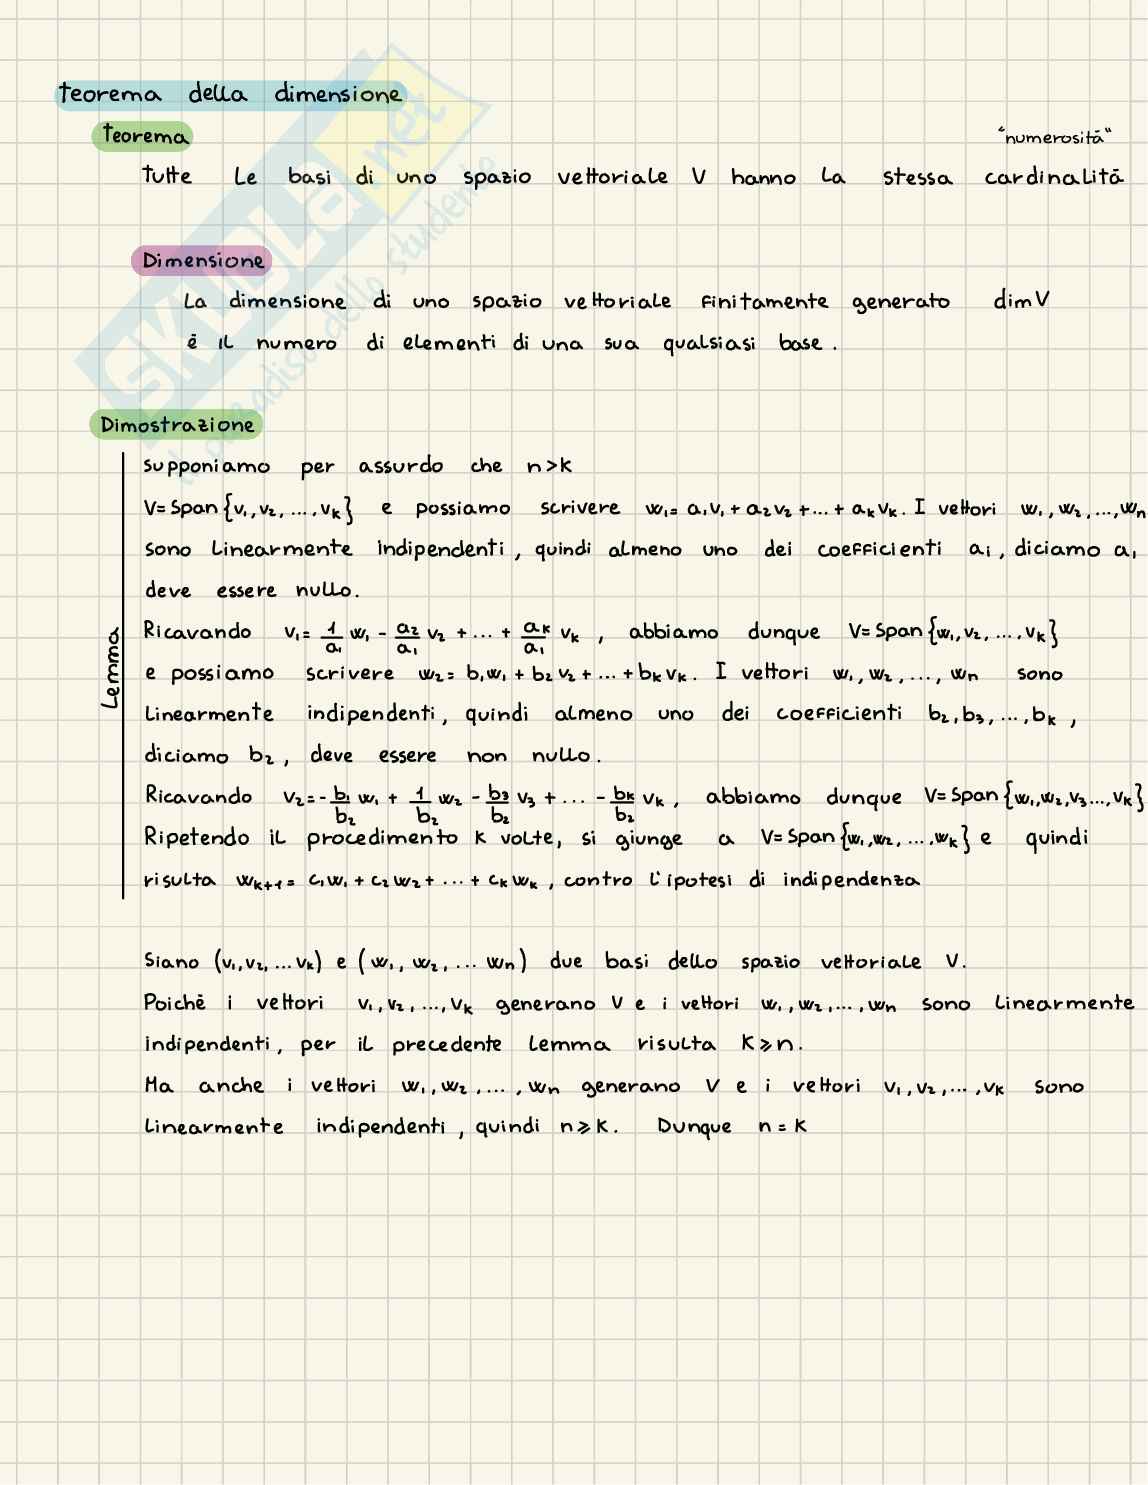 teorema della dimensione
teorema
"numerositā"
tutte le basi di uno spazio vettoriale V hanno la stessa cardinalitā
Dimensione
La dimensione di uno spazio vettoriale finitamente generato dim V
ē il numero di elementi di una sua qualsiasi base.
Dimostrazione
supponiamo per assurdo che n>k
V=Span{v₁,v₂,...,vₖ} e possiamo scrivere w₁= a₁v₁+a₂v₂+...+aₖvₖ. I vettori w₁,w₂,...,wₙ
sono linearmente indipendenti, quindi almeno uno dei coefficienti aᵢ, diciamo a₁
deve essere nullo.
Ricavando v₁= 1/a₁ w₁ - a₂/a₁ v₂ +...+ aₖ/a₁ vₖ, abbiamo dunque V=Span{w₁,v₂,...,vₖ}
e possiamo scrivere w₂= b₁w₁+b₂v₂+...+bₖvₖ. I vettori w₁,w₂,...,wₙ sono
linearmente indipendenti, quindi almeno uno dei coefficienti b₂,b₃,...,bₖ,
diciamo b₂, deve essere non nullo.
Ricavando v₂=-b₁/b₂ w₁ + 1/b₂ w₂ - b₃/b₂ v₃ +... - bₖ/b₂ vₖ, abbiamo dunque V=Span{w₁,w₂,v₃...,vₖ}
Ripetendo il procedimento k volte, si giunge a V=Span{w₁,w₂,...,wₖ} e quindi
risulta wₖ₊₁= c₁w₁+c₂w₂+...+cₖwₖ, contro l'ipotesi di indipendenza
Lemma
Siano (v₁,v₂,...vₖ) e (w₁,w₂,...wₙ) due basi dello spazio vettoriale V.
Poichē i vettori v₁,v₂,...,vₖ generano V e i vettori w₁,w₂,...,wₙ sono linearmente
indipendenti, per il precedente lemma risulta k⩾n.
Ma anche i vettori w₁,w₂,...,wₙ generano V e i vettori v₁,v₂,...,vₖ sono
linearmente indipendenti, quindi n⩾k. Dunque n=k
SKUOLA.net
il paradiso dello studente